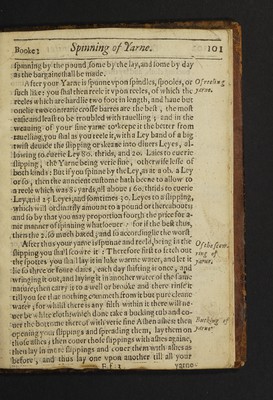 Booke 2 Spinning of Yarne. 101
spinning by the pound, some by the lay, and some by day
as the bargaine shall be made.
After your Yarne is spunne vpon spindles, spooles, or
such like: you shal then reele it vpon reeles, of which the
reeles which are hardlie two foot in length, and haue but
onelie two contrarie crosse barres are the best, the most
easie and least to be troubled with rauelling; and in the
weauing of your fine yarne to keepe it the better from
rauelling, you shal as you reele it, with a Ley band of a big
twist deuide the slipping or skeane into diuers Leyes, al-
lowing to euerie Ley 80. thrids, and 20. Laies to euerie
slipping, the Yarne being verie fine, otherwise lesse of
both kinds: But if you spinne by the Ley, as at a ob. a Ley
or so, then the auncient custome hath beene to allow to
a reele which was 8. yards, all aboue 160. thrids to euerie
Ley, and 25 Leyes, and sometimes 30. Leyes to a slipping,
which will ordinarily amount to a pound or thereabouts:
and so by that you may proportion foorth the price for a-
nie manner of spinning whatsoeuer: for if the best thus,
then the 2. so much bated, and so accordinglie the worst.
After thus your yarne is spunne and reeld, being in the
slipping you shall scowre it: Therefore first to fetch out
the spottes you shal lay it in luke warme water, and let it
lie so three or foure daies, each day shifting it once, and
wringing it out, and laying it in another water of the same
nature; then carry it to a well or brooke and there rinse it
till you see that nothing commeth from it but pure cleane
water; for whilst there is any filth within it there will ne-
uer be white cloth: which done take a bucking tub and co-
uer the bottome thereof with verie fine Ashen ashes: then
opening your slippings and spreading them, lay them on
those ashes; then couer those slippings with ashes againe,
then lay in more slippings and couer them with ashes as
before, and thus lay one vpon another till all your
yarne
Of reeling
yarne.
Of the scow-
ring of
yarne.
Bucking of
yarne